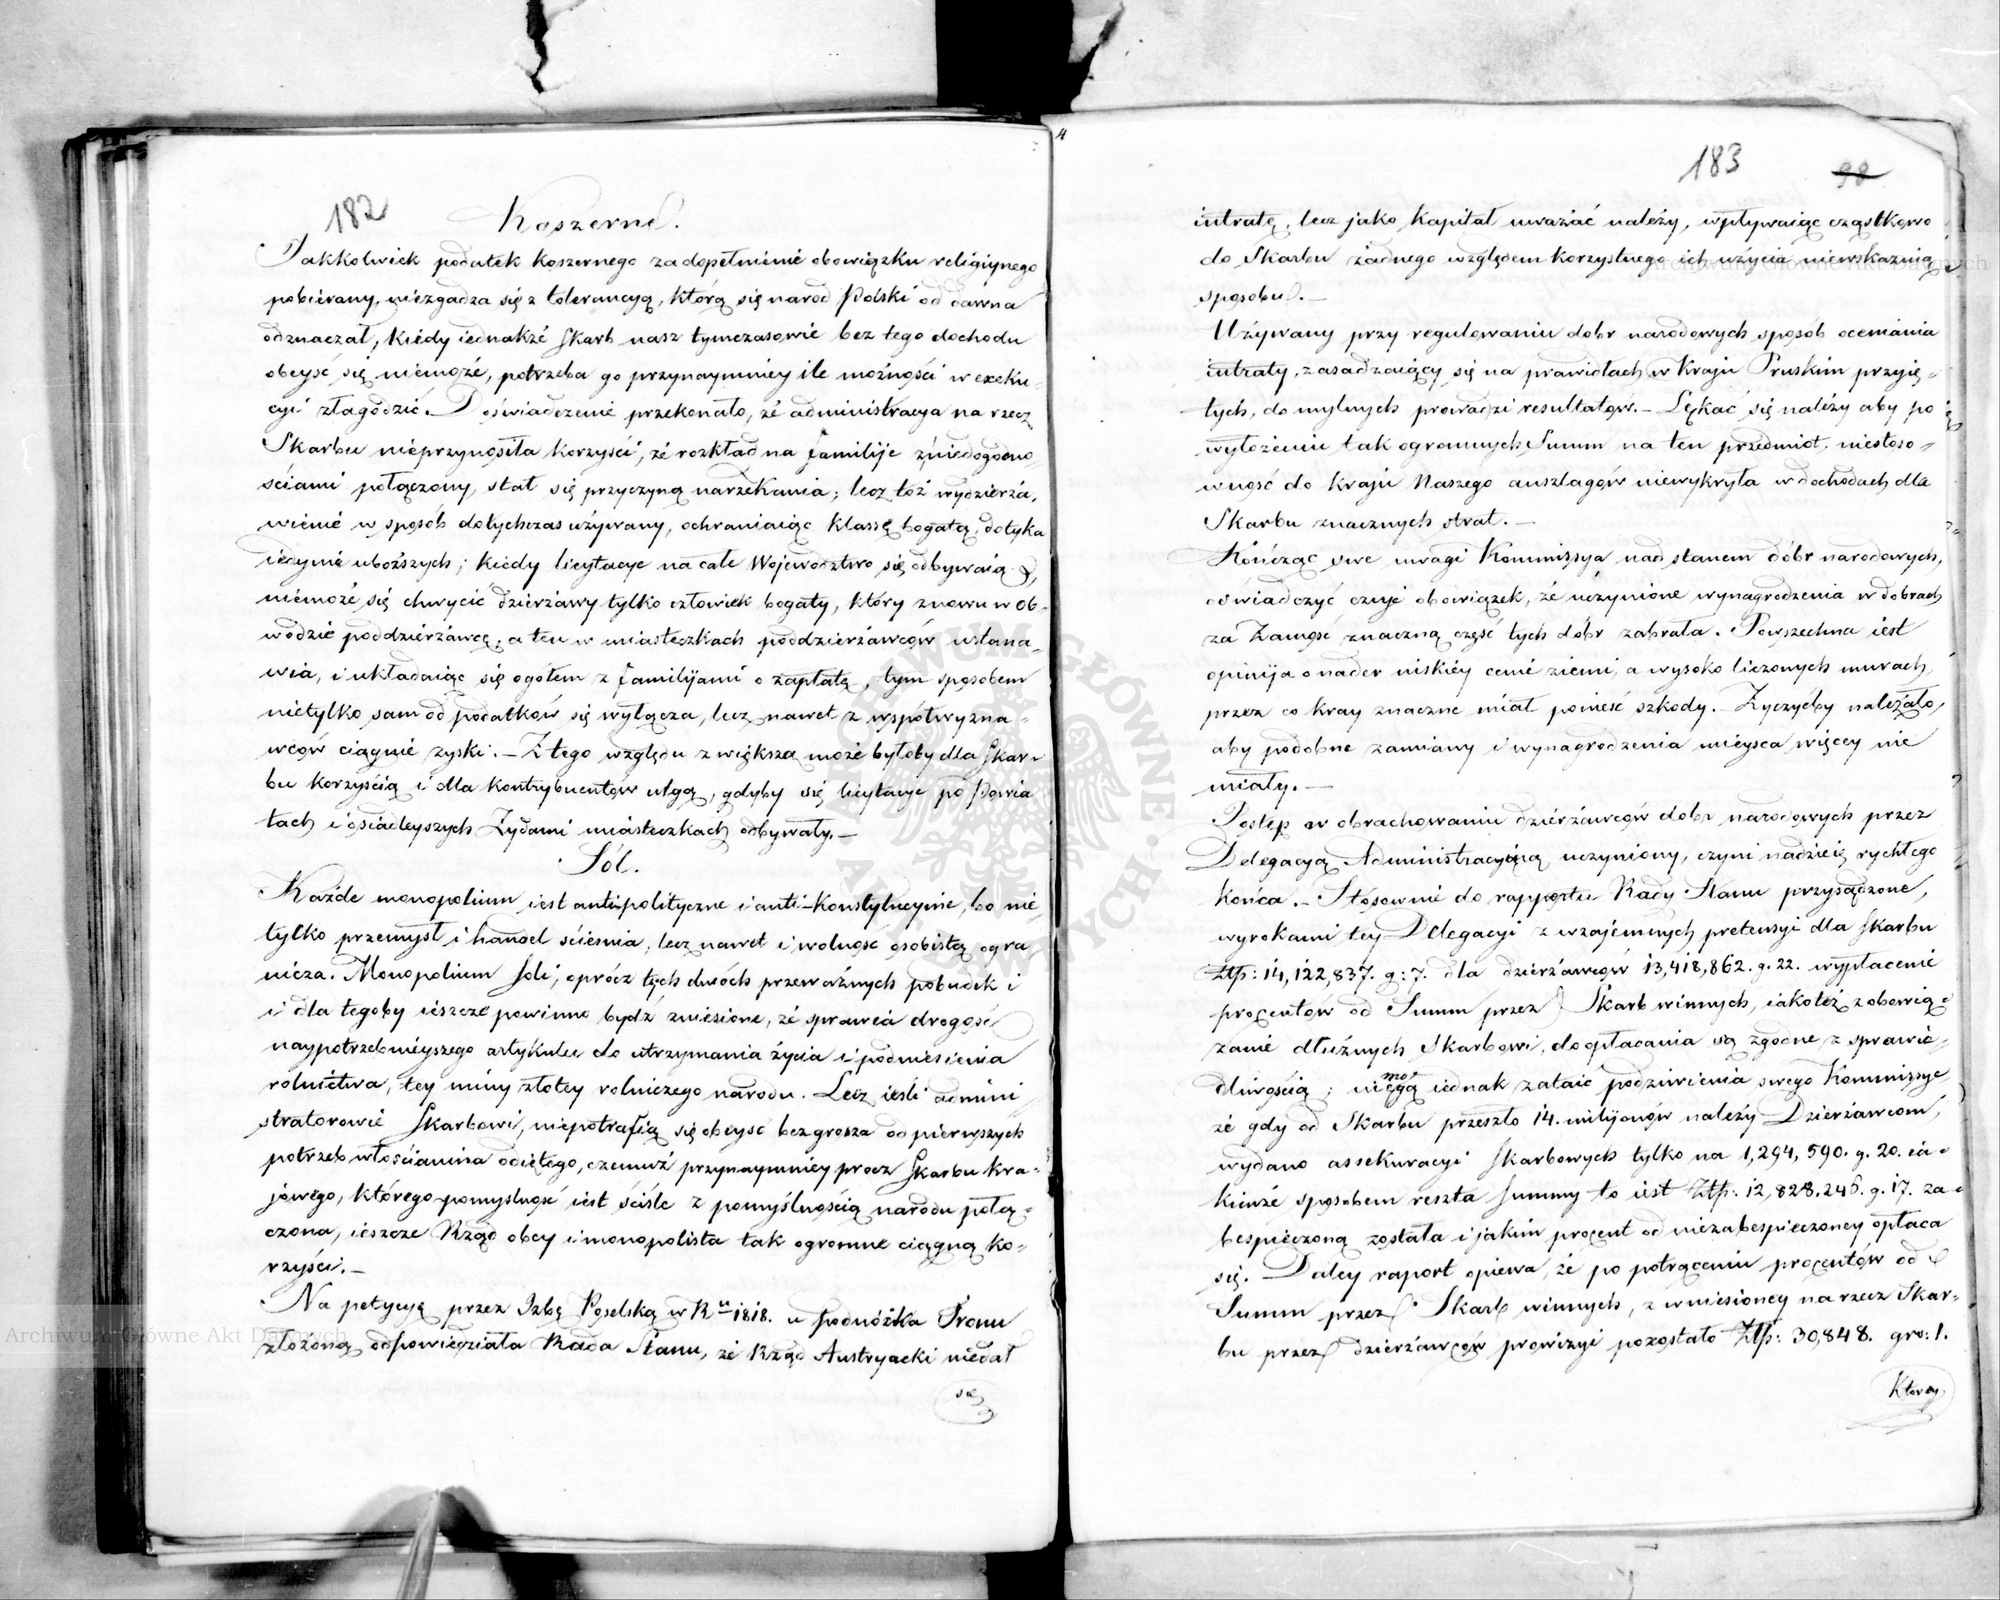 182
Koszerne.
Jakkolwiek podatek koszernego za dopełnienie obowiązku religiynego
pobierany, niezgadza się z tolerancyą, którą się naród Polski od dawna
odznaczał, kiedy iednakże skarb nasz tymczasowie bez tego dochodu
obeyść się niemoże, potrzeba go przynaymniey ile możności w exeku-
cyi złagodzić. Doświadczenie przekonało, że administracya na rzecz
Skarbu nieprzynosiła korzyści, że rozkład na familije z niedogodno
ściami połączony, stał się przyczyną narzekania; lecz toż wydzierża,
wienie w sposób dotychczas używany, ochraniaiąc klassę bogatą, dotyka
iedynie uboższych; kiedy licytacye na całe Województwo się odbywaią,
niemoże się chwycić dzierżawy tylko człowiek bogaty, który znowu w ob-
wodzie poddzierżawcę, a ten w miasteczkach poddzierżawców ustana-
wia, i układaiąc się ogółem z familijami o zapłatę, tym sposobem
nietylko sam od podatków się wyłącza, lecz nawet z współwyzna-
wców ciągnie zyski. – Z tego względu z większą może byłoby dla skar-
bu korzyścią i dla kontrybuentów ulgą, gdyby się licytacye po Powia
tach i osiadleyszych Żydami miasteczkach odbywały. –
Sól.
Każde monopolium iest antipolityczne i anti-konstytucyine, bo nie
tylko przemysł i handel ścieśnia, lecz nawet i wolność osobistą ogra
nicza. Monopolium soli, oprócz tych dwóch przeważnych pobudek i
i dla tegoby ieszcze powinno bydź zniesione, że sprawia drogość
naypotrzebnieyszego artykułu do utrzymania życia i podniesienia
rolnictwa, tey miny złotey rolniczego narodu. Lecz ieśli admini
stratorowie skarbowi, niepotrafią się obeyść bez grosza od pierwszych
potrzeb włościanina odiętego, czemuż przynaymniey procz skarbu kra-
jowego, którego pomyślność iest ściśle z pomyślnością narodu połą-
czona, ieszcze Rząd obcy i monopolista tak ogromne ciągną ko-
rzyści. –
Na petycyę przez Izbę Poselską w Ru 1818. u podnóżka Tronu
złożoną odpowiedziała Rada Stanu, że Rząd Austryacki niedał
się
183
98
intratę, lecz jako kapitał uważać należy, wpływaiąc cząstkowo
do Skarbu żadnego względem korzystnego ich użycia niewskazuią
sposobu. –
Używany przy regulowaniu dóbr narodowych sposób oceniania
intraty, zasadzaiący się na prawidłach w Kraju Pruskim przyię-
tych, do mylnych prowadzi resultatów. – Lękać się należy aby po
wyłożeniu tak ogromnych Summ na ten przedmiot, niestoso-
wność do kraju Naszego anszlagów niewykryła w dochodach dla
Skarbu znacznych strat. –
Kończąc swe uwagi Kommissya nad stanem dóbr narodowych,
oświadczyć czuje obowiązek, że uczynione wynagrodzenia w dobrach
za Zamość znaczną część tych dóbr zabrała. Powszechna iest
opinija o nader niskiey cenie ziemi, a wysoko liczonych murach,
przez co kray znaczne miał ponieść szkody. – Życzyćby należało,
aby podobne zamiany i wynagrodzenia mieysca więcey nie
miały. –
Postęp w obrachowaniu dzierżawców dóbr narodowych przez
Delegacyą Administracyiną uczyniony, czyni nadzieię rychłego
końca. – Stósownie do rapportu Rady Stanu przysądzone,
wyrokami tey Delegacyi z wzaiemnych pretensyi dla skarbu
Złtp: 14,122,837. g: 7. dla dzierżawców 13,418,862. g. 22. wypłacenie
procentów od Summ przez Skarb winnych, iakoteż zobowią-
zanie dłużnych Skarbowi, do opłacania są zgodne z sprawie-
dliwością; niemogą iednak zataić podziwienia swego Kommissye
że gdy od Skarbu przeszło 14. milijonów należy Dzierżawcom,
wydano assekuracyi skarbowych tylko na 1,294,590. g. 20. ia-
kimże sposobem reszta summy to iest Złtp: 12,828.246. g. 17. za-
bespieczoną została i jakim procent od niezabespieczoney opłaca
się. Daley raport opiewa, że po potrąceniu procentów od
Summ przez Skarb winnych, z wniesioney na rzecz Skar-
bu przez dzierżawców prowizyi pozostało Złtp: 30,848. gro: 1.
Którey